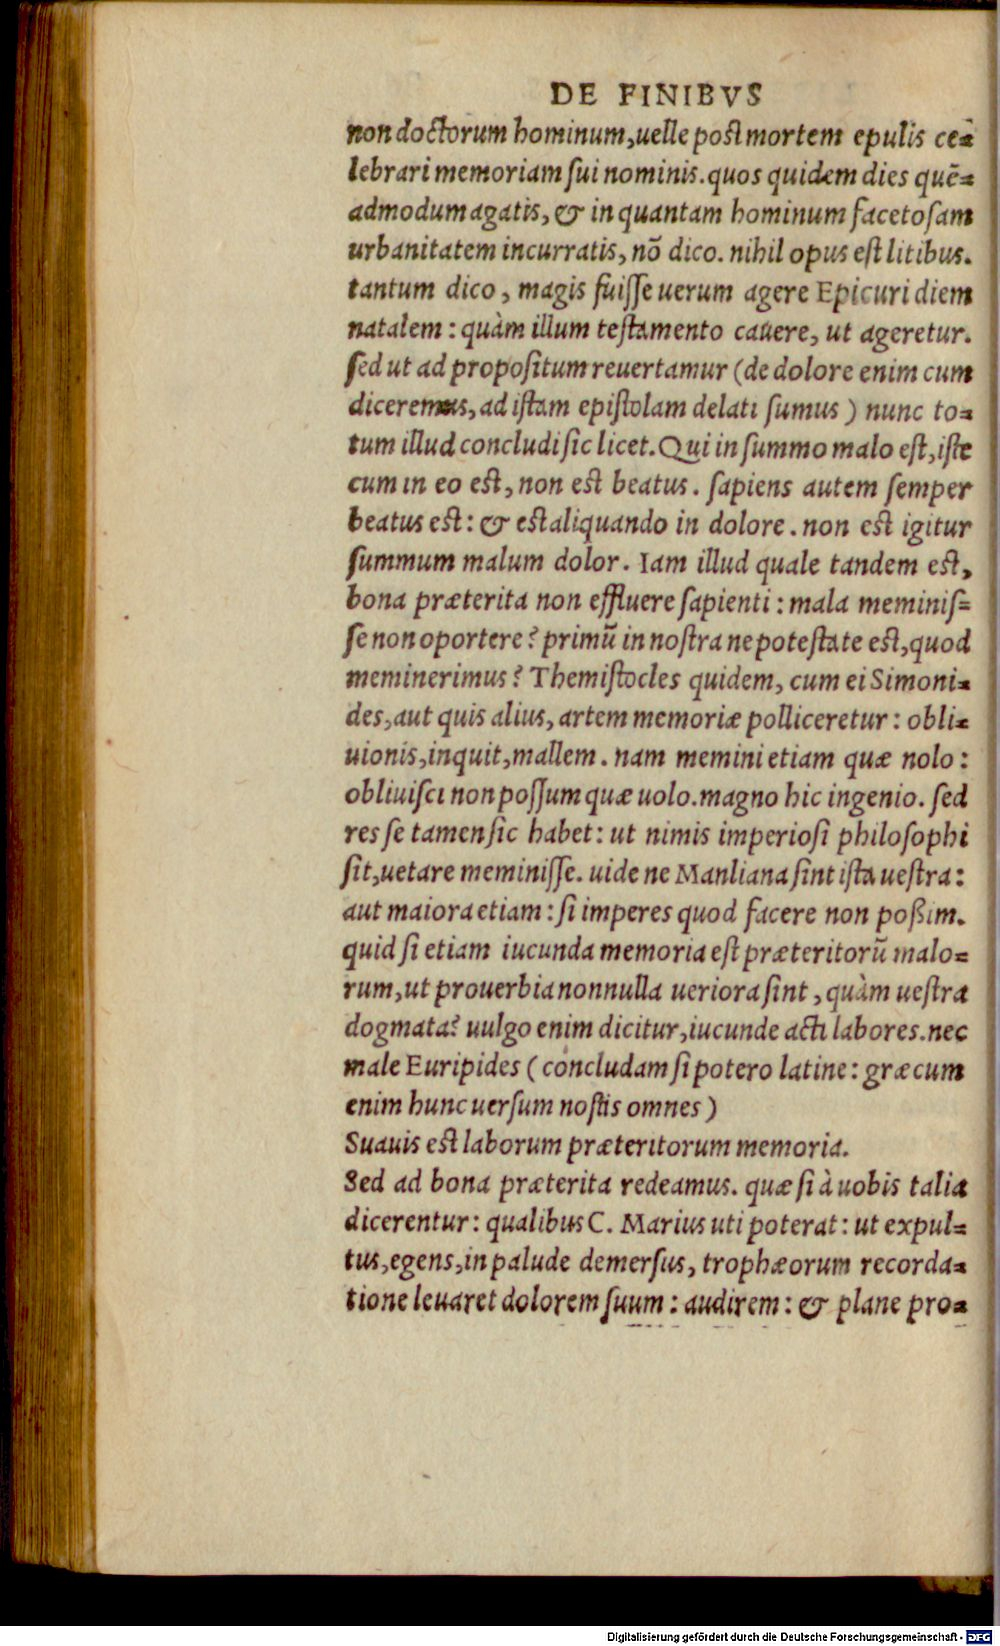 DE FINIBVS
non doctorum hominum,uelle post mortem epulis ce-
lebrari memoriam sui nominis.quos quidem dies quē-
admodum agatis, & in quantam hominum facetosam
urbanitatem incurratis, nō dico. nihil opus est litibus.
tantum dico, magis fuisse uerum agere Epicuri diem
natalem: quàm illum testamento cauere, ut ageretur.
sed ut ad propositum reuertamur (de dolore enim cum
diceremus, ad istam epistolam delati sumus) nunc to-
tum illud concludi sic licet. Qui in summo malo est, iste
cum in eo est, non est beatus. sapiens autem semper
beatus est: & est aliquando in dolore. non est igitur
summum malum dolor. Iam illud quale tandem est,
bona præterita non effluere sapienti: mala meminis-
se non oportere? primū in nostra ne potestate est, quod
meminerimus? Themistocles quidem, cum ei Simoni-
des, aut quis alius, artem memoriæ polliceretur: obli-
uionis, inquit, mallem. nam memini etiam quæ nolo:
obliuisci non possum quæ uolo. magno hic ingenio. sed
res se tamen sic habet: ut nimis imperiosi philosophi
sit, uetare meminisse. uide ne Manliana sint ista uestra:
aut maiora etiam: si imperes quod facere non poßim.
quid si etiam iucunda memoria est præteritorū malo-
rum, ut prouerbia nonnulla ueriora sint, quàm uestra
dogmata? uulgo enim dicitur, iucunde acti labores. nec
male Euripides (concludam si potero latine: græcum
enim hunc uersum nostis omnes)
Suauis est laborum præteritorum memoria.
Sed ad bona præterita redeamus. quæ si à uobis talia
dicerentur: qualibus C. Marius uti poterat: ut expul-
tus, egens, in palude demersus, trophæorum recorda-
tione leuaret dolorem suum: audirem: & plane pro-
Digitalisierung gefördert durch die Deutsche Forschungsgemeinschaft - DFG